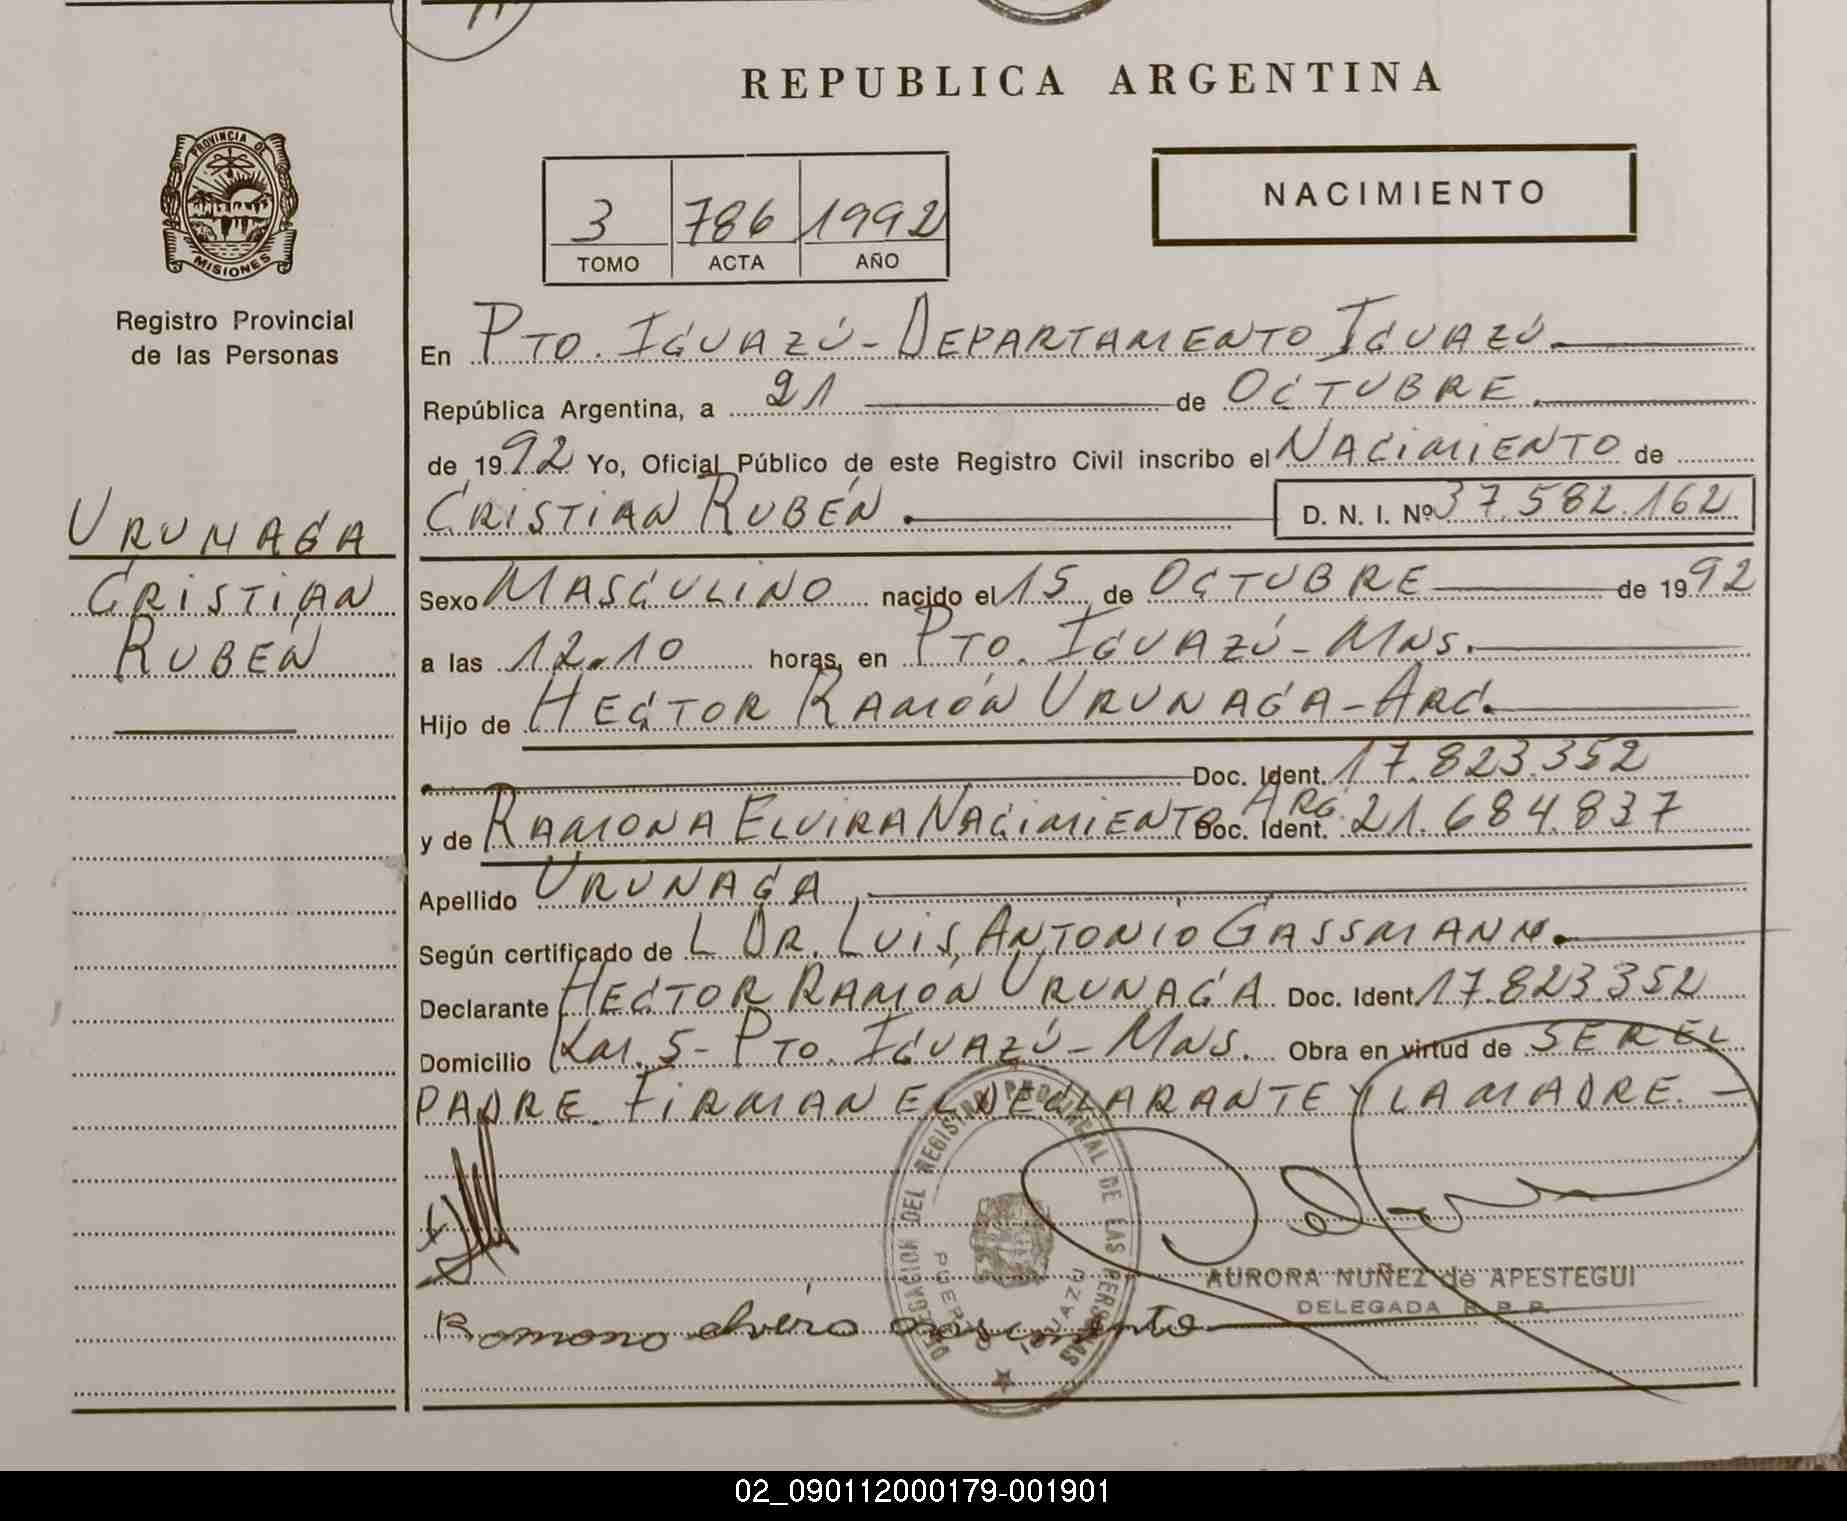 REPUBLICA ARGENTINA
PROVINCIA DE
MISIONES
Registro Provincial
de las Personas
3 786 1992
TOMO ACTA AÑO
NACIMIENTO
En PTO. IGUAZÚ - DEPARTAMENTO IGUAZÚ.
República Argentina, a 21 de OCTUBRE.
de 1992 Yo, Oficial Público de este Registro Civil inscribo el NACIMIENTO de
CRISTIAN RUBÉN. D. N. I. Nº 37.582.162
URUNAGA
CRISTIAN
RUBÉN
Sexo MASCULINO nacido el 15 de OCTUBRE de 1992
a las 12.10 horas, en PTO. IGUAZÚ - MNS.
Hijo de HECTOR RAMÓN URUNAGA - ARG.
Doc. Ident. 17.823.352
y de RAMONA ELVIRA NACIMIENTO ARG. Doc. Ident. 21.684.837
Apellido URUNAGA.
Según certificado de L DR. LUIS ANTONIO GASSMANN.
Declarante HECTOR RAMÓN URUNAGA Doc. Ident. 17.823.352
Domicilio KM. 5 - PTO. IGUAZÚ - MNS. Obra en virtud de SER EL
PADRE. FIRMAN EL DECLARANTE Y LA MADRE. -
DELEGACION DEL REGISTRO PROVINCIAL DE LAS PERSONAS
PUERTO IGUAZU
AURORA NUÑEZ de APESTEGUI
DELEGADA R. P. P.
Ramona elvira nacimiento
02_090112000179-001901